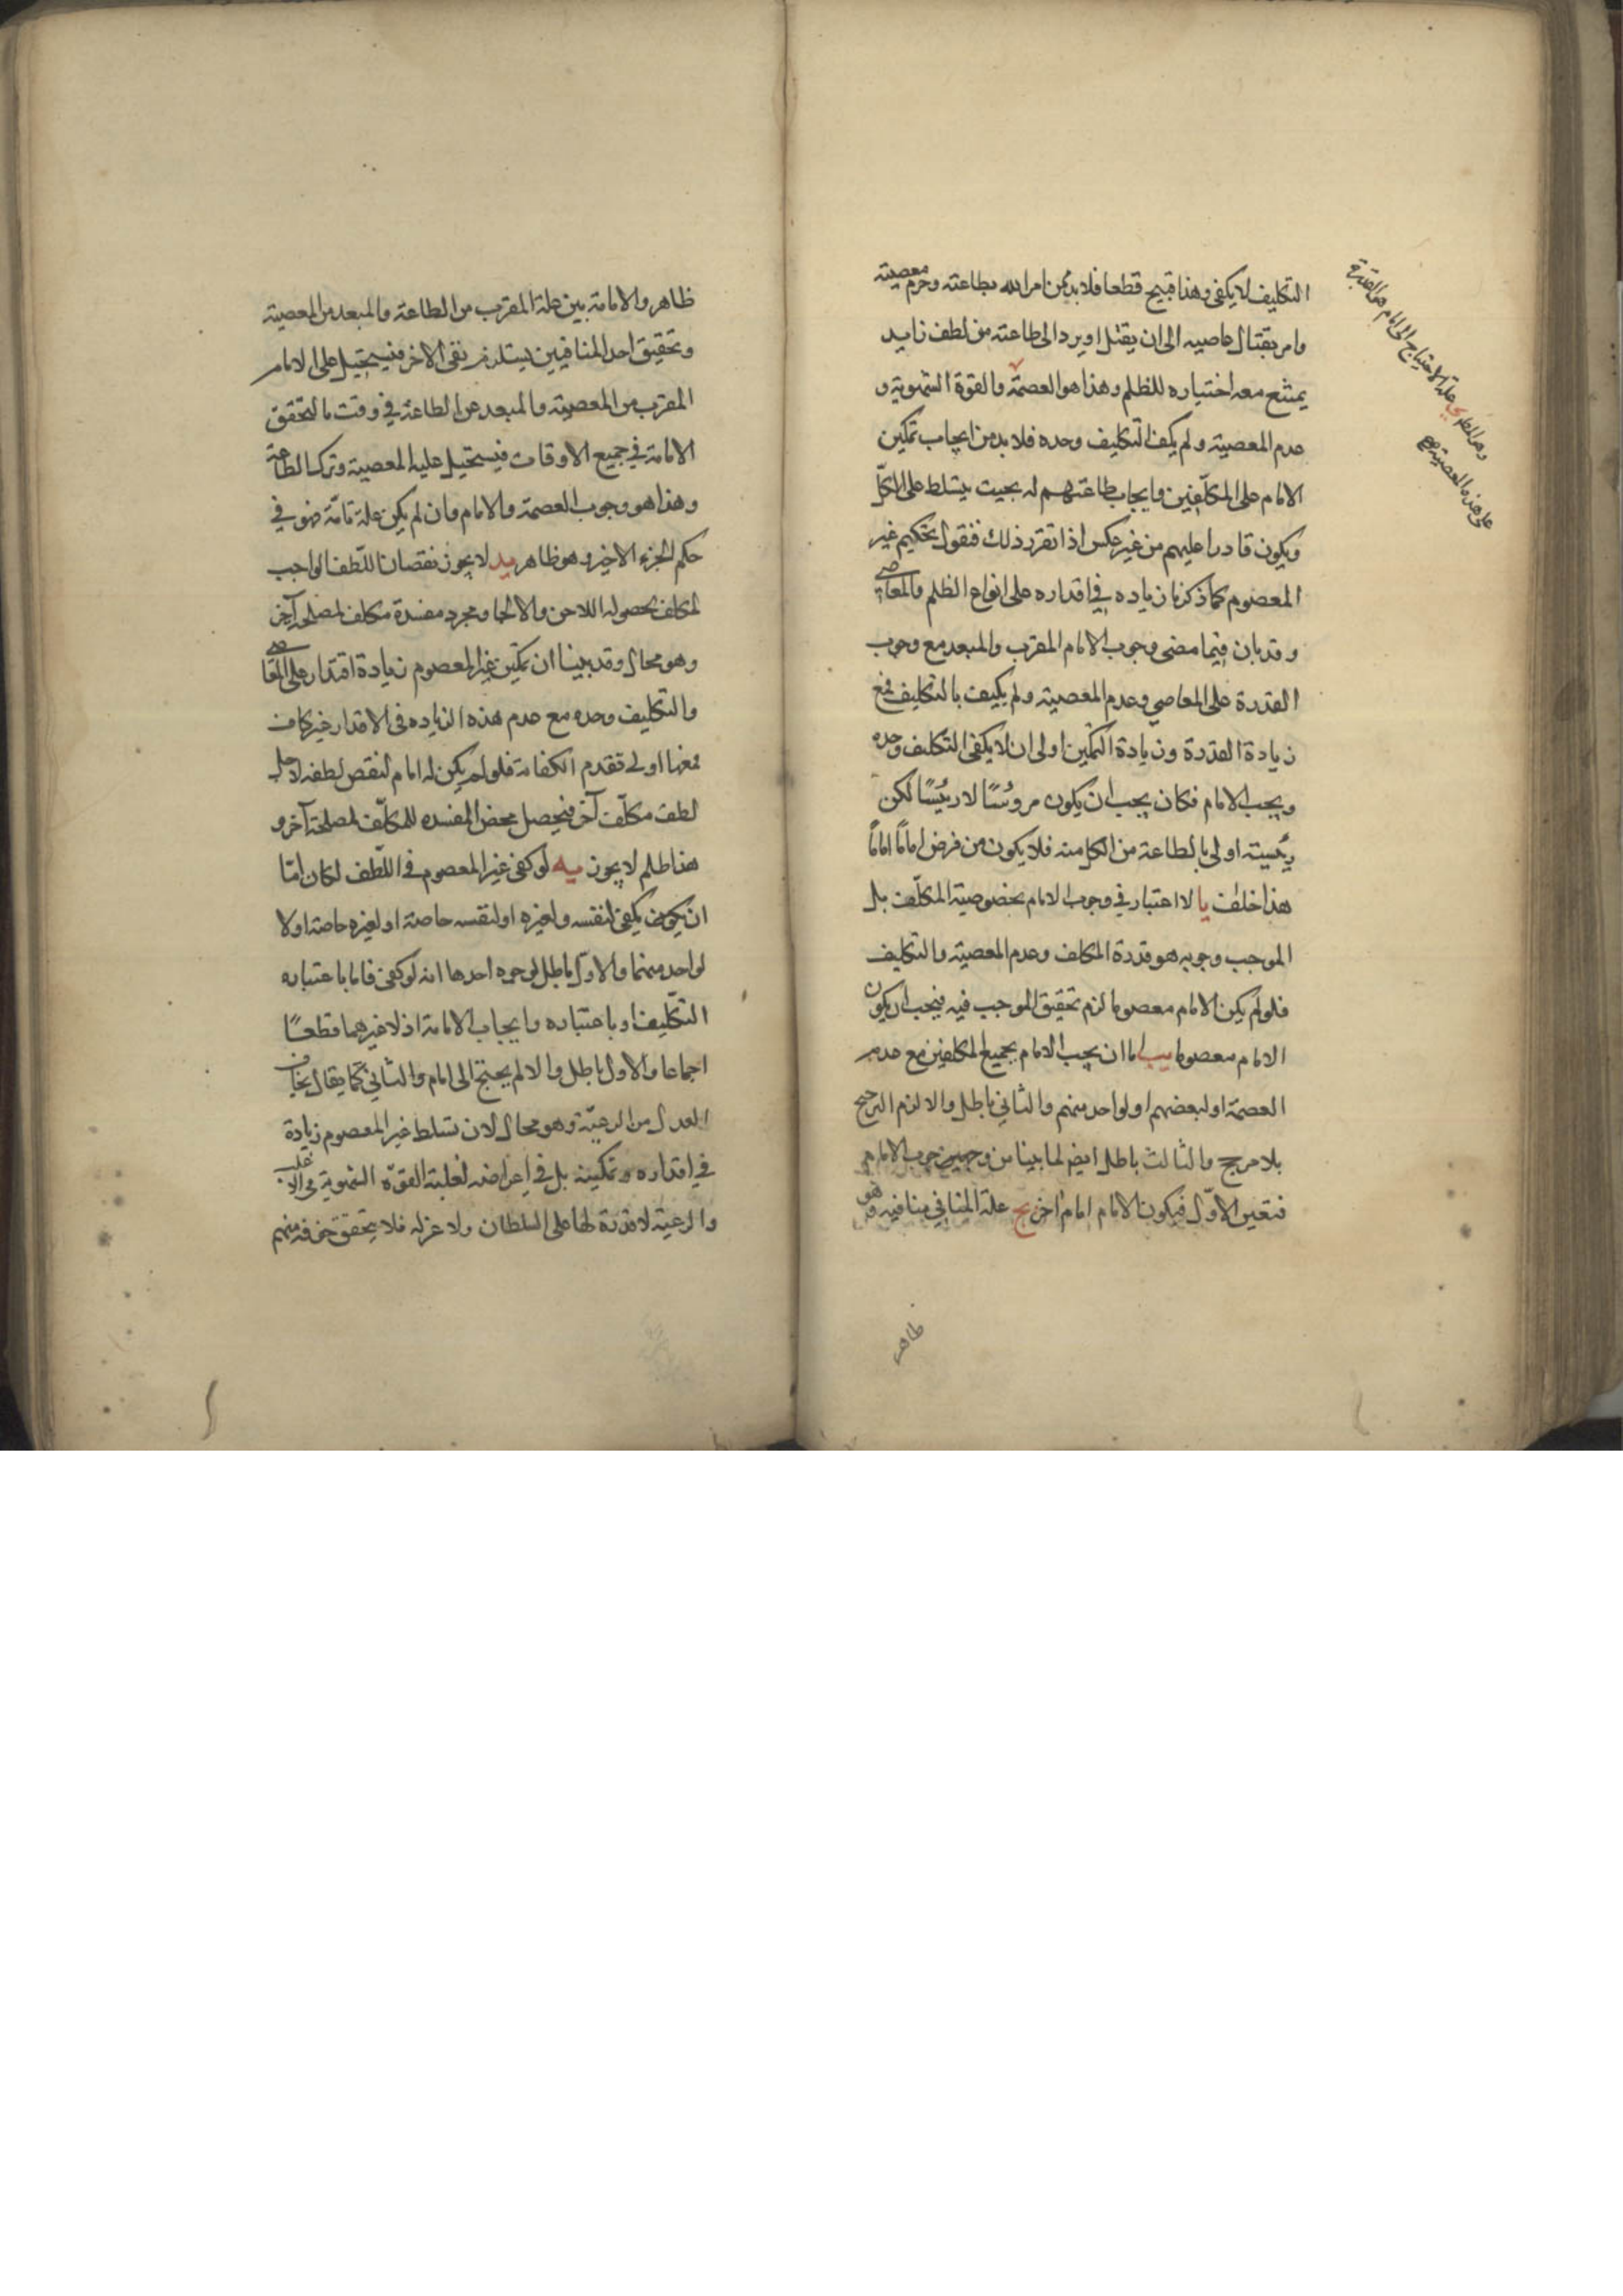 التكليف لا يكفى وهذا قبيح قطعا فلا بد من امر الله بطاعته وحرم معصيته
وامر بقتال عاصيه الى ان يقتل او يرد الى طاعته من لطف زايد
يمتنع معه اختياره للظلم وهذا هو العصمة والقوة الشهوية و
عدم المعصية ولم يكف التكليف وحده فلا بد من ايجاب تمكين
الامام على المكلفين وايجاب طاعتهم له بحيث يتسلط على الكلّ
ويكون قادرا عليهم من غير عكس اذا تقرر ذلك فنقول تحكيم غير
المعصوم كما ذكرنا زياده في اقداره على انواع الظلم والمعاصي
وقد بان فيما مضى وجوب الامام المقرب والمبعد مع وجوب
القدرة على المعاصي وعدم المعصية ولم يكيف بالتكليف فمع
زيادة القدرة وزيادة التمكين اولى ان لا يكفى التكليف وحده
ويجب الامام فكان يجب ان يكون مروسًا لا رئيسًا لكن
رئيسيته اولى بالطاعة من الكل منه فلا يكون من فرض امامًا امامًا
هذا خلف يا لا اعتبار في وجوب الامام بخصوصية المكلّف بل
الموجب وجوبه هو قدرة المكلف وعدم المعصية والتكليف
فلو لم يكن الامام معصوما لزم تحقيق الموجب فيه فيجب ان يكون
الامام معصوما يب اما ان يجب الامام بجميع المكلفين مع عدم
العصمة او لبعضهم او لواحد منهم والثاني باطل والا لزم الترجيح
بلا مرجح والثالث باطل ايضا لما بينا من وجهين وجوب الامام
فتعين الاوّل فيكون الامام امام اخر يج علة المنافي منافيه وهو
وهذا ظاهر ي علة الاحتياج الى الامام هو القدرة
على هذه المعصية
ظاهر
ظاهر والامامة بين علة المقرب من الطاعة والمبعد من المعصية
وتحقيق احد المنافيين يستلزم نفى الاخر فيستحيل على الامام
المقرب من المعصية والمبعد عن الطاعة في وقت ما لتحقق
الامامة في جميع الاوقات فيستحيل عليه المعصية وترك الطاعة
وهذا هو وجوب العصمة والامام وان لم يكن علة تامّة فهو في
حكم الجزء الاخير وهو ظاهر يد لا يجوز نقصان اللّطف الواجب
وهو محال وقد بينا ان تمكين غير المعصوم زيادة اقتدار على المعاصي
والتكليف وحده مع عدم هذه الزياده فى الاقدار غير كاف
فمعها اولى بعدم الكفاية فلو لم يكن له امام لنقص لطفه لاجل
لطف مكلّف آخر فيحصل محض المفسده للمكلّف لمصلحة آخر و
هذا ظلم لا يجوز يه لو كفى غير المعصوم فى اللّطف لكان امّا
ان يكون يكفى لنفسه ولغيره او لنفسه خاصة او لغيره خاصة او لا
لواحد منهما والاوّل باطل لوجوه احدها انه لو كفى فاما باعتباره
التكليف او باعتباره وايجاب الامامة اذ لا غيرهما قطعًا
اجماعا والاول باطل والا لم يحتج الى امام والثاني كما يقال يخاف
العدل من الرعيّة وهو محال لان تسلط غير المعصوم زيادة
في اقداره وتمكينه بل فى اغراضه لغلبة القوّة الشهوية فى الاغلب
والرعية لا قدرة لها على السلطان ولا عزله فلا يتحقق خوفه منهم